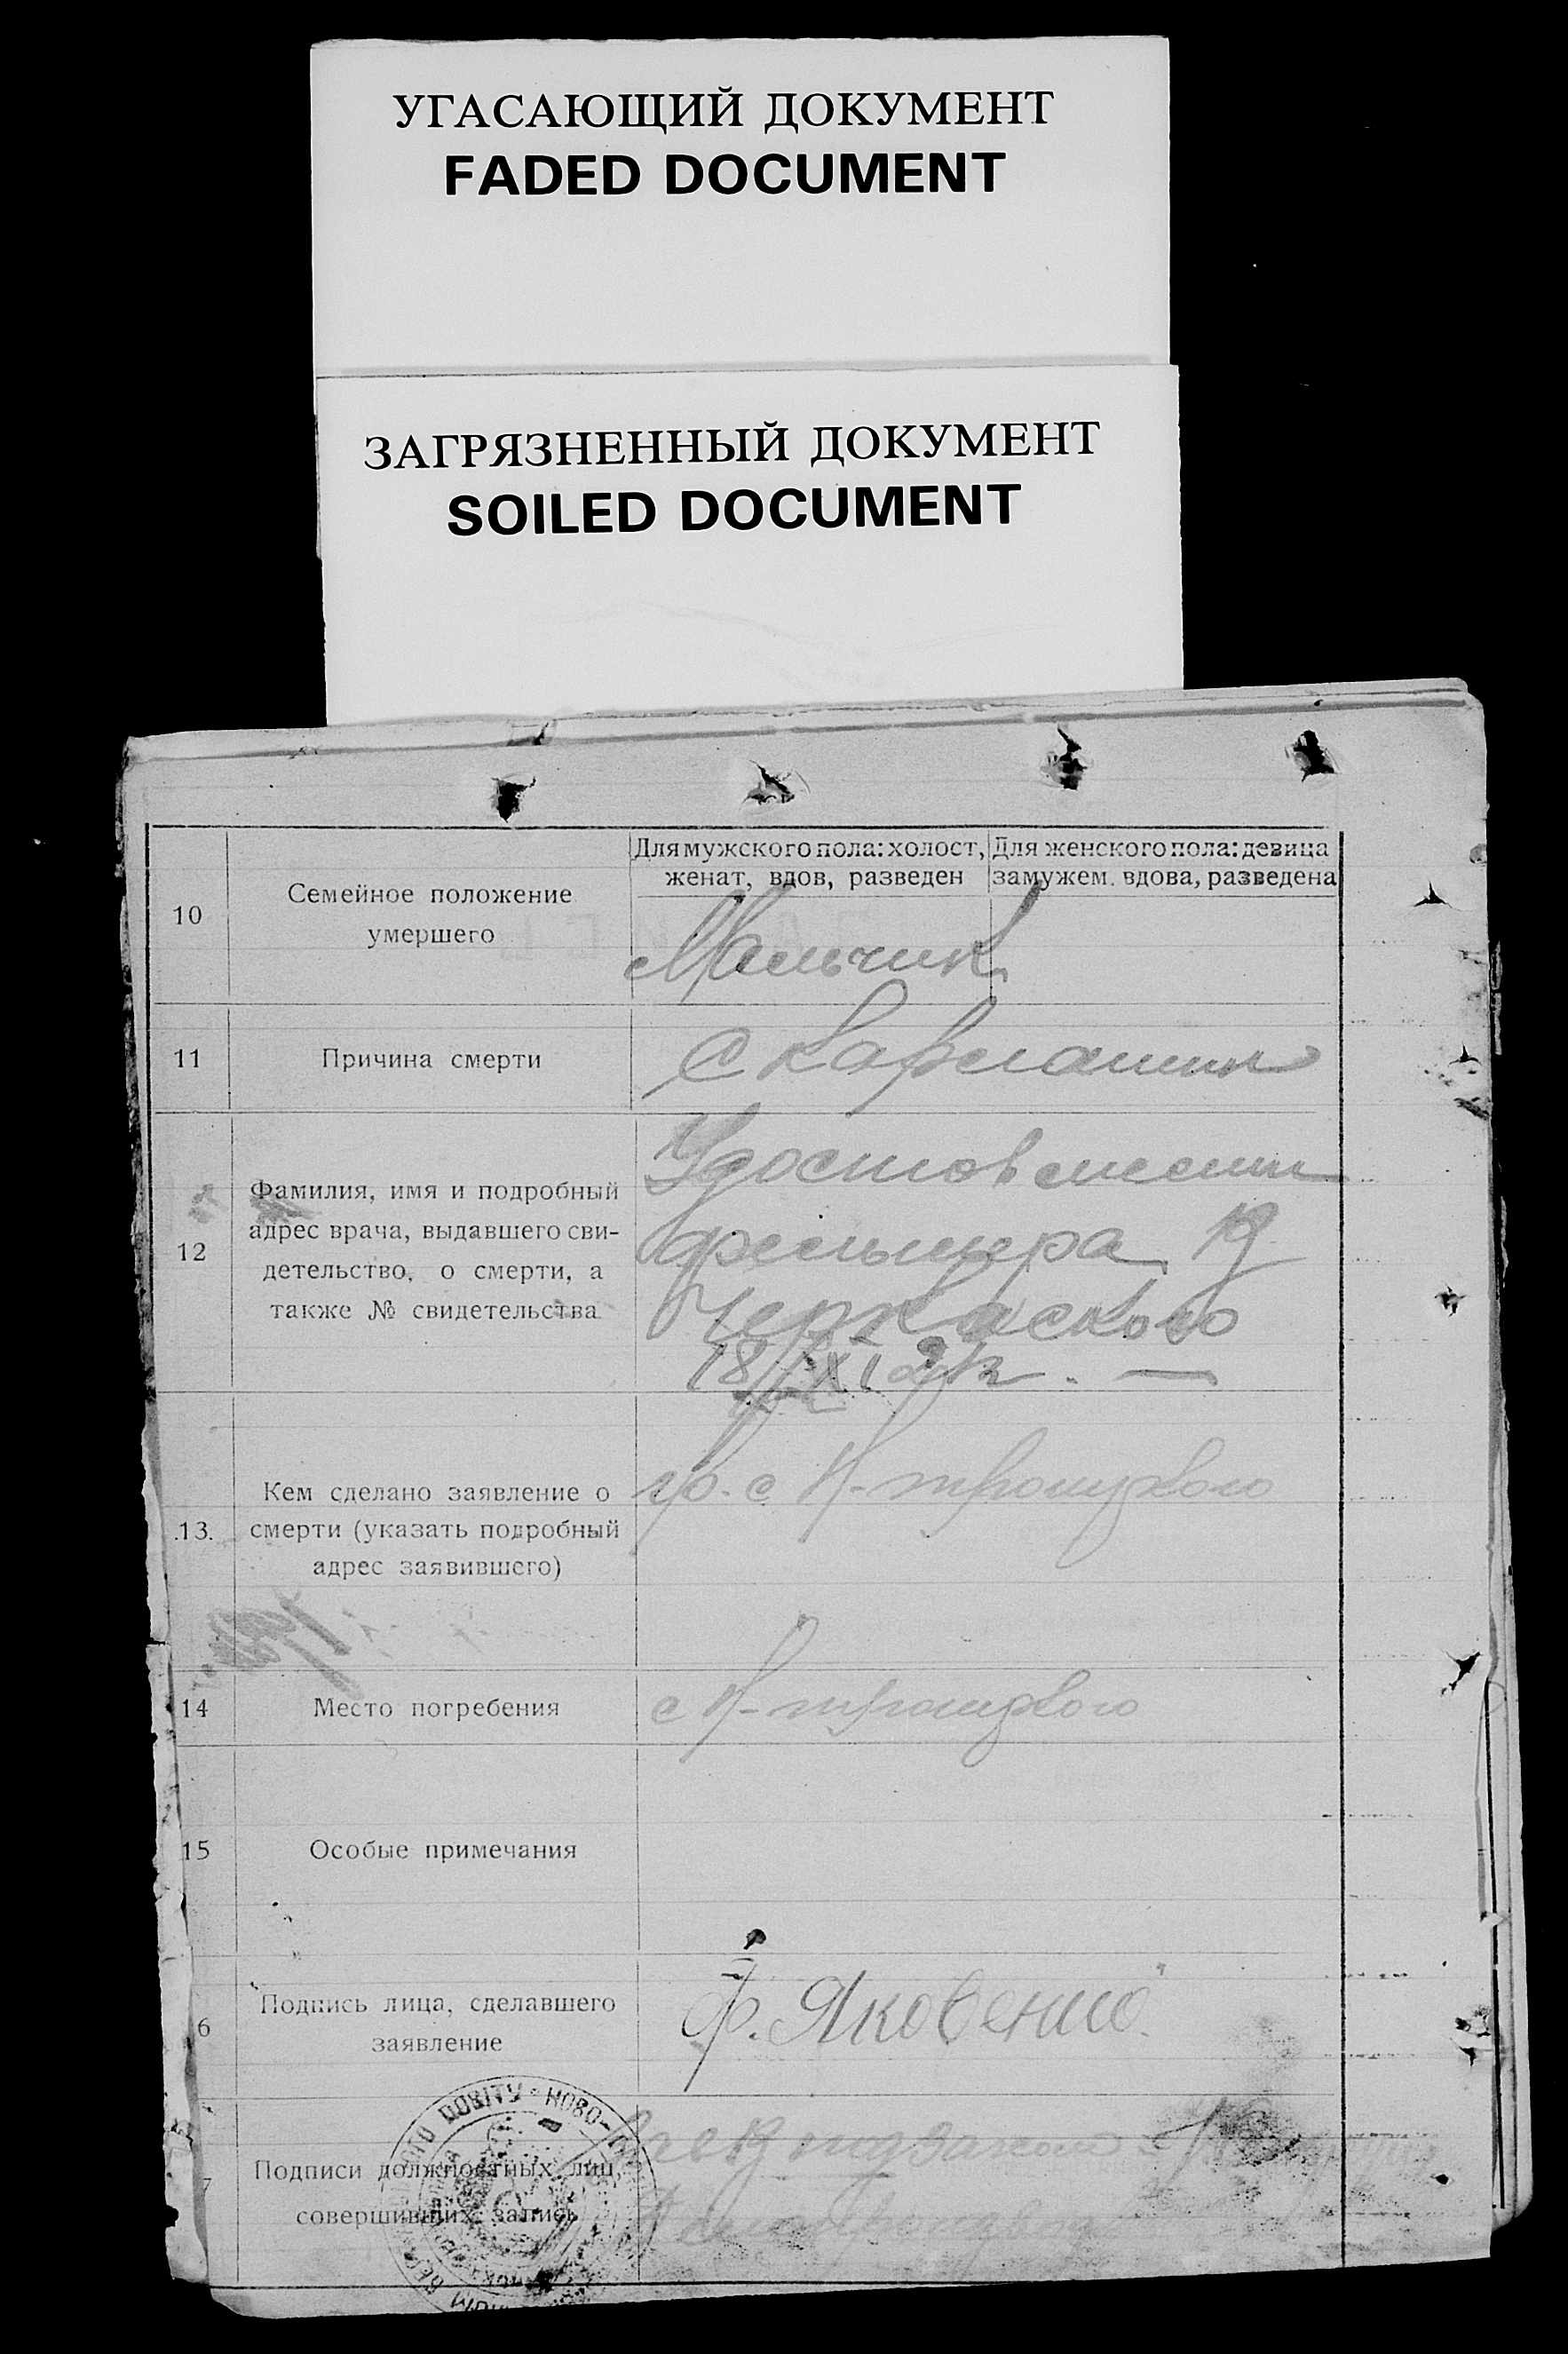 УГАСАЮЩИЙ ДОКУМЕНТ
FADED DOCUMENT
ЗАГРЯЗНЕННЫЙ ДОКУМЕНТ
SOILED DOCUMENT
10
Семейное положение
умершего
Для мужского пола: холост,
женат, вдов, разведен
Для женского пола: девица
замужем. вдова, разведена
Мальчик
11
Причина смерти
Скарлатин
12
Фамилия, имя и подробный
адрес врача, выдавшего сви-
детельство, о смерти, а
также № свидетельства
фельшера
Черкаского
18/XI
13.
Кем сделано заявление о
смерти (указать подробный
адрес заявившего)
гр. с Н-троицкого
14
Место погребения
с Н-троицкого
15
Особые примечания
6
Подпись лица, сделавшего
заявление
Ф. Яковенко
7
Подписи должностных лиц,
совершивших запись
НОВО-